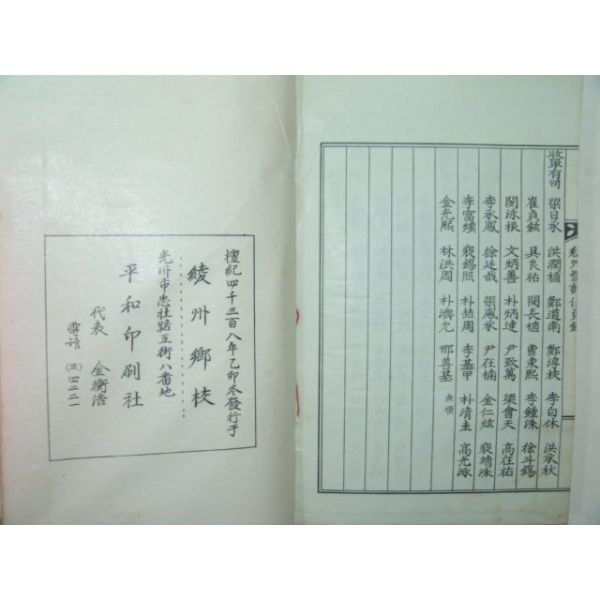 收單有司 梁日承 洪潤植 鄭淳枝 李白休 洪承秋
崔貞鉉 具良祐 鄭道南 曺秉熙 李鍾洙 徐斗錫
閔泳根 文炳善 閔長植 尹致萬 梁會天 高在祐
李承鳳 徐廷哉 朴炳連 尹在楠 金仁炫 裵靖洙
李富燦 裵錫熙 梁鳳承 李基甲 朴清圭 高光泳
金光熙 林洪周 朴喆周 邢善基
朴濟允 無順
檀紀四千三百八年乙卯冬發行于
綾州鄉校
光州市忠壯路五街八番地
平和印刷社
代表 金衡浩
電話 (三)四二二一